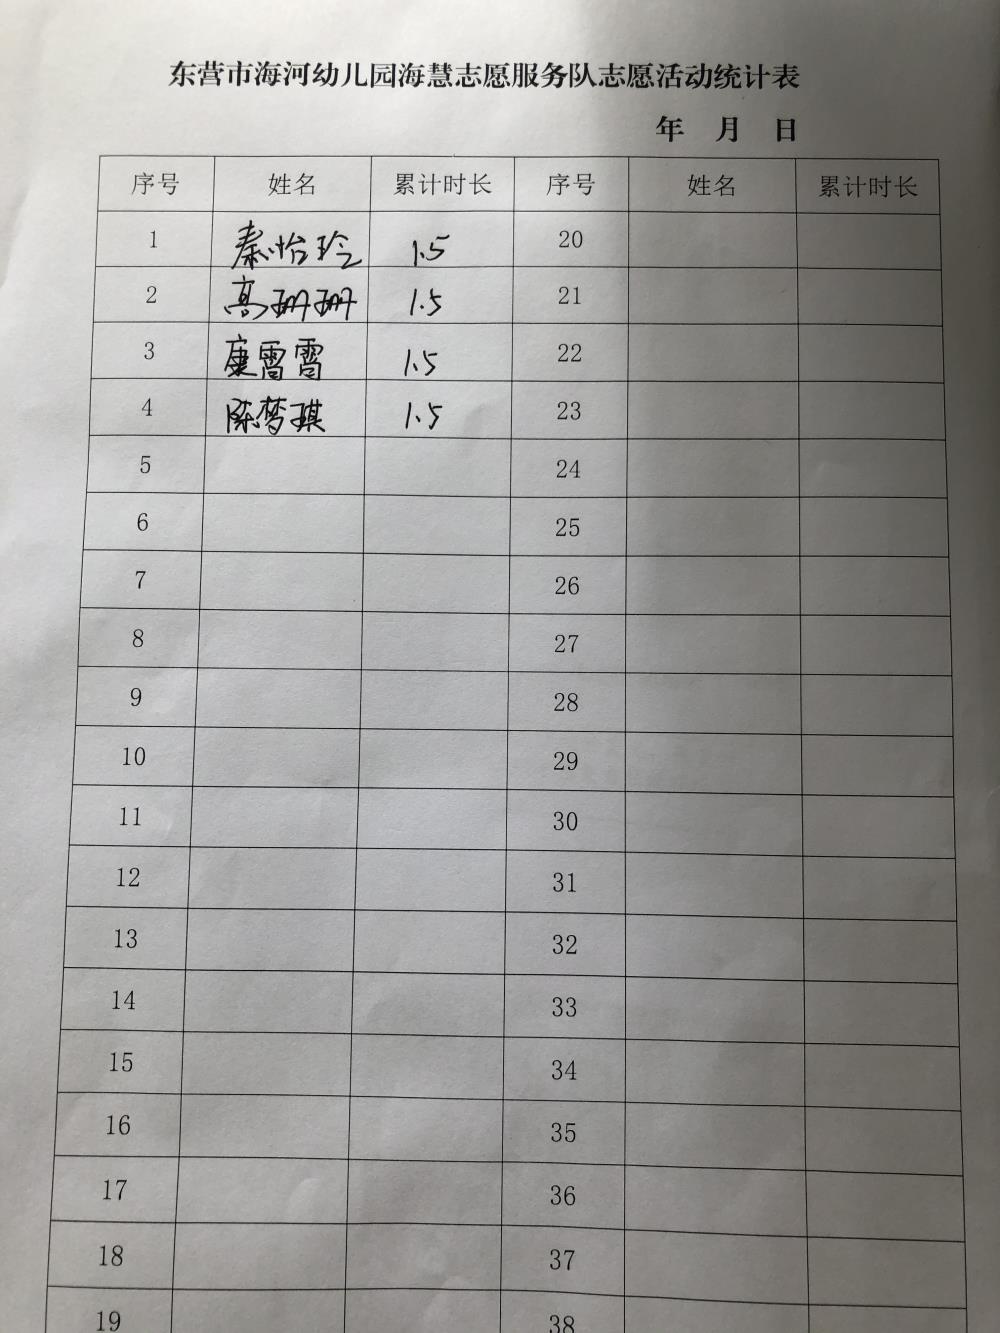 东营市海河幼儿园海慧志愿服务队志愿活动统计表
年 月 日
序号 姓名 累计时长 序号 姓名 累计时长
1 秦怡玲 1.5 20
2 高珊珊 1.5 21
3 康霄霄 1.5 22
4 陈梦琪 1.5 23
5 24
6 25
7 26
8 27
9 28
10 29
11 30
12 31
13 32
14 33
15 34
16 35
17 36
18 37
19 38